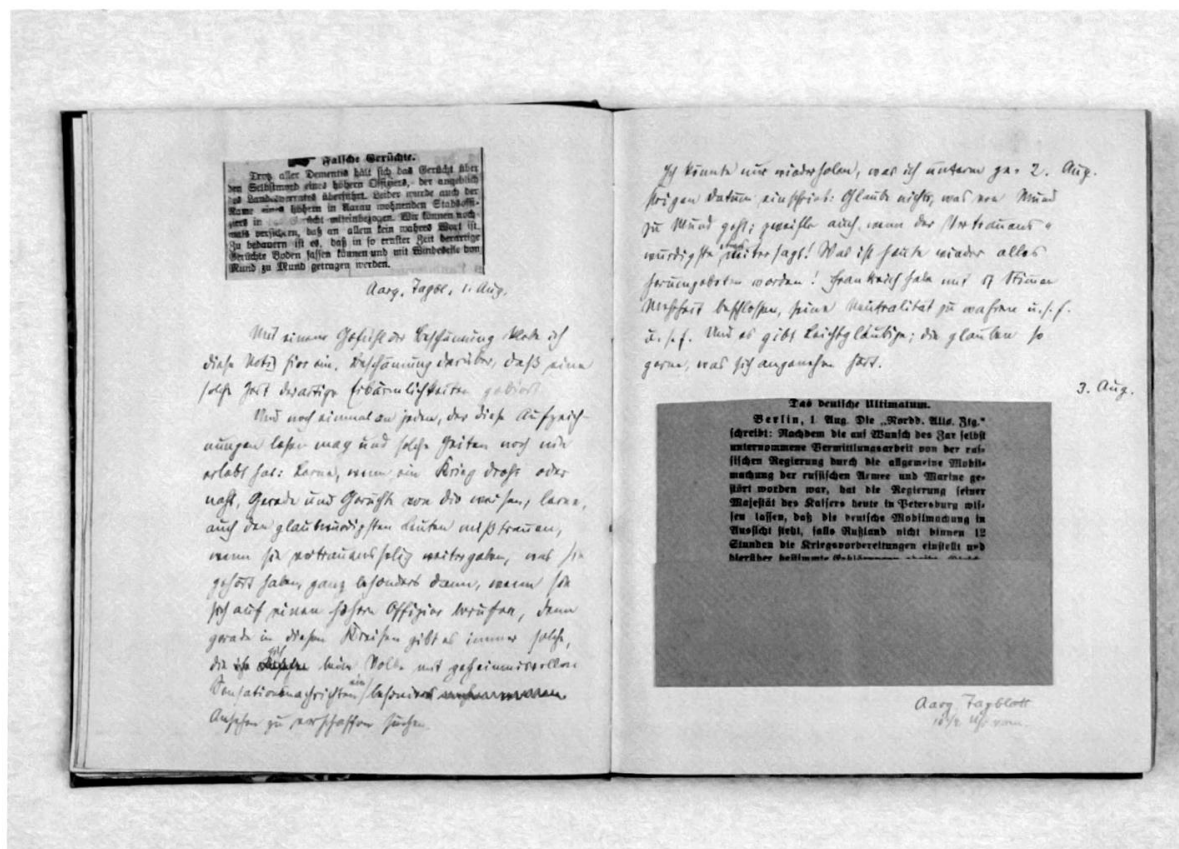 Falsche Gerüchte.
Trotz aller Dementis hält sich das Gerücht über
den Selbstmord eines höhern Offiziers, der angeblich
des Landesverrates überführt. Leider wurde auch der
Name eines höhern in Aarau wohnenden Stabsoffi-
ziers in miteinbezogen. Wir können noch-
mals versichern, daß an allem kein wahres Wort ist.
Zu bedauern ist es, daß in so ernster Zeit derartige
Gerüchte Boden fassen können und mit Windeseile von
Mund zu Mund getragen werden.
Aarg. Tagbl. 1. Aug.
Mit einem Gefühl der Beschämung klebe ich
diese Notiz hier ein. Beschämung darüber, daß eine
solche Zeit derartige Erbärmlichkeiten gebiert.
Und noch einmal an jeden, der diese Aufzeich-
nungen lesen mag und solche Zeiten noch nie
erlebt hat: Lerne, wenn ein Krieg droht oder
naht, Gerede und Gerüchte von dir weisen, lerne,
auch den glaubwürdigsten Leuten mißtrauen,
wenn sie vertrauensselig weitergeben, was sie
gehört haben, ganz besonders dann, wenn sie
sich auf einen höhern Offizier berufen, denn
gerade in diesen Kreisen gibt es immer solche,
die sich beim Volke mit geheimnisvollen
Sensationsnachrichten ein besonderes
Ansehen zu verschaffen suchen.
Ich könnte nur wiederholen, was ich unterm ge- 2. Aug.
strigen Datum einschrieb: Glaube nichts, was von Mund
zu Mund geht; zweifle auch, wenn der Vertrauens-
würdigste etwas weitersagt! Was ist heute wieder alles
herumgeboten worden! Frankreich habe mit 17 Stimmen
Mehrheit beschlossen, seine Neutralität zu wahren u.s.f.
u.s.f. Und es gibt Leichtgläubige; die glauben so
gerne, was sich angenehm hört.
3. Aug.
Das deutsche Ultimatum.
Berlin, 1. Aug. Die „Nordd. Allg. Ztg."
schreibt: Nachdem die auf Wunsch des Zar selbst
unternommene Vermittlungsarbeit von der rus-
sischen Regierung durch die allgemeine Mobil-
machung der russischen Armee und Marine ge-
stört worden war, hat die Regierung seiner
Majestät des Kaisers heute in Petersburg wis-
sen lassen, daß die deutsche Mobilmachung in
Aussicht steht, falls Rußland nicht binnen 12
Stunden die Kriegsvorbereitungen einstellt und
hierüber bestimmte Erklärungen
Aarg. Tagblatt
10½ Uhr vorm.